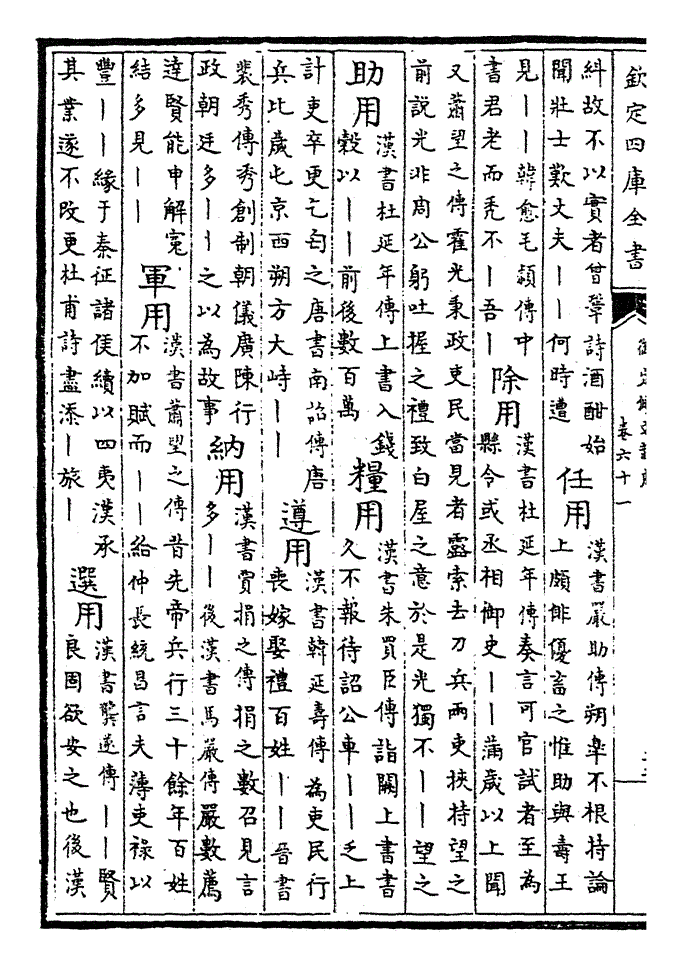 欽定四庫全書
卷六十一
糾故不以實者曾鞏詩酒酣始
聞壯士歎丈夫丨丨何時遭
任用
漢書嚴助傳朔臯不根持論
上頗俳優畜之惟助與壽王
見丨丨韓愈毛潁傳中
書君老而秃不丨吾丨
除用
漢書杜延年傳奏言可官試者至為
縣令或丞相御史丨丨滿歲以上聞
又蕭望之傳霍光秉政吏民當見者露索去刀兵兩吏挾持望之
前說光非周公躬吐握之禮致白屋之意於是光獨不丨丨望之
助用
漢書杜延年傳上書入錢
穀以丨丨前後數百萬
糧用
漢書朱買臣傳詣闕上書書
久不報待詔公車丨丨乏上
計吏卒更乞匄之唐書南詔傳唐
兵比歲屯京西朔方大峙丨丨
遵用
漢書韓延壽傳為吏民行
喪嫁娶禮百姓丨丨晉書
裴秀傳秀創制朝儀廣陳行
政朝廷多丨丨之以為故事
納用
漢書賈捐之傳捐之數召見言
多丨丨後漢書馬嚴傳嚴數薦
達賢能申解寃
結多見丨丨
軍用
漢書蕭望之傳昔先帝兵行三十餘年百姓
不加賦而丨丨給仲長統昌言夫薄吏祿以
豐丨丨緣于秦征諸侯續以四夷漢承
其業遂不改更杜甫詩盡添丨旅丨
選用
漢書龔遂傳丨丨賢
良固欲安之也後漢